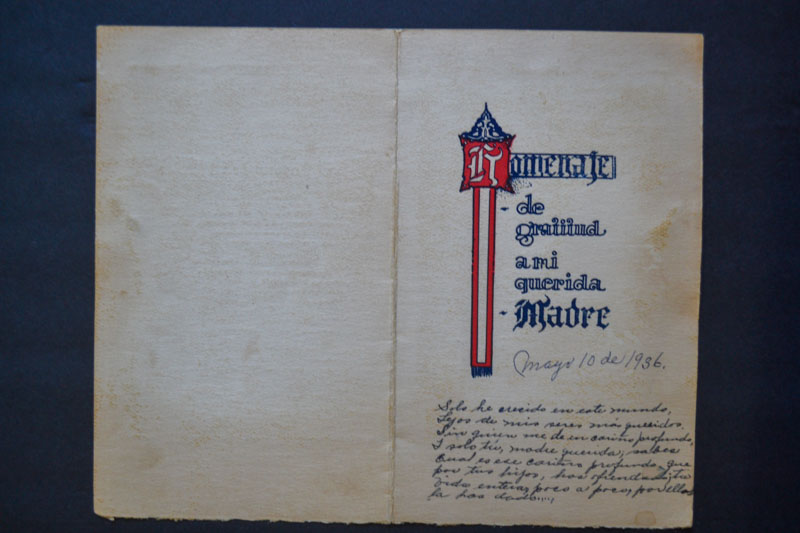 Homenaje
- de
gratitud
a mi
querida
- Madre
Mayo 10 de 1936.
Solo he crecido en este mundo,
Lejos de mis seres más queridos,
Sin quien me dé un cariño profundo,
Y solo tú, madre querida, sabes
Cual es ese cariño profundo, que
por tus hijos, has ofrendado; tu
vida entera, poco a poco, por ellos
la has dado.....